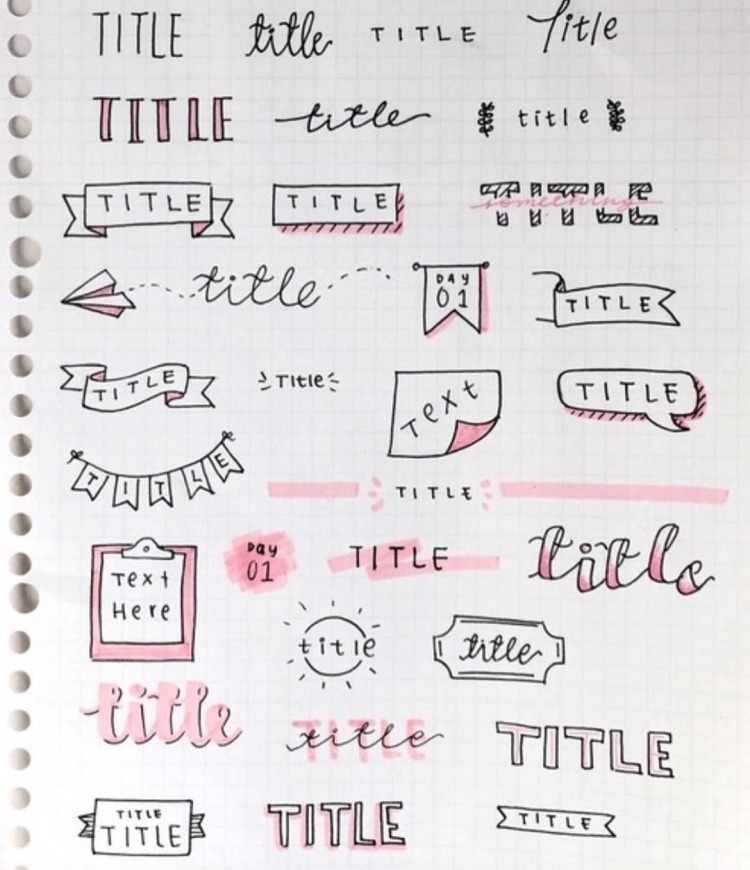 TITLE title TITLE Title
TITLE title title
TITLE TITLE TITLE something
title DAY 01 TITLE
TITLE Title Text TITLE
TITLE
TITLE
Text Here DAY 01 TITLE title
title title
title TITLE title TITLE
TITLE TITLE TITLE TITLE